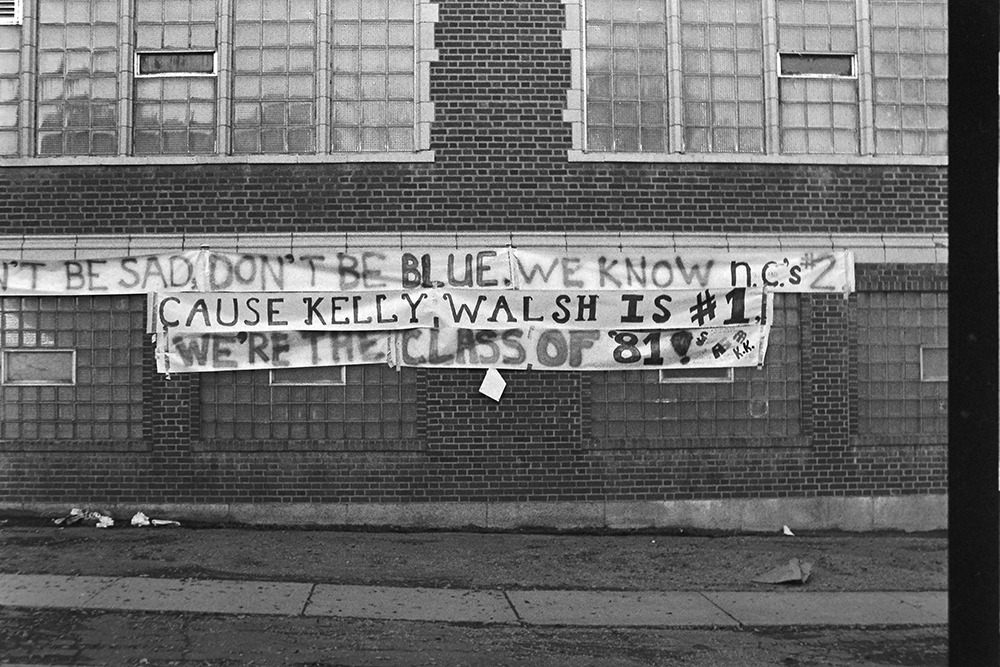 N'T BE SAD, DON'T BE BLUE. WE KNOW n.c.'s #2
CAUSE KELLY, WALSH IS #1,
WE'RE THE CLASS OF '81!
K.K.